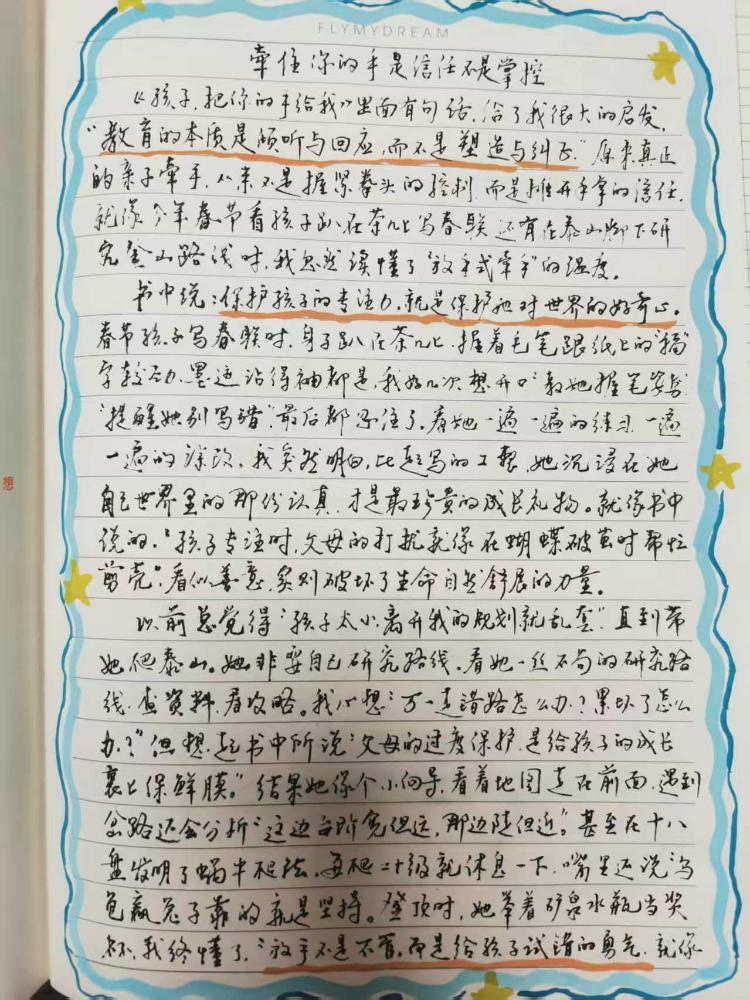 FLYMYDREAM
牵住你的手是信任不是掌控
《孩子,把你的手给我》里面有句话,给了我很大的启发,
"教育的本质是倾听与回应,而不是塑造与纠正。"原来真正
的亲子牵手,从来不是握紧拳头的控制,而是摊开手掌的信任,
就像今年春节看孩子趴在茶几上写春联还有在泰山脚下研
究登山路线时,我忽然读懂了"放手式牵手"的温度。
书中说:保护孩子的专注力,就是保护她对世界的好奇心。
春节孩子写春联时,身子趴在茶几上,握着毛笔跟纸上的"福"
字较劲,墨迹沾得袖都是,我好几次想开口"教她握笔姿势"
"提醒她别写错"最后都忍住了,看她一遍一遍的练习,一遍
一遍的涂改,我突然明白,比起写的工整,她沉浸在她
自己世界里的那份认真,才是最珍贵的成长礼物。就像书中
想
说的,"孩子专注时,父母的打扰就像在蝴蝶破茧时帮忙
剪壳",看似善意,实则破坏了生命自然舒展的力量。
以前总觉得"孩子太小,离开我的规划就乱套",直到带
她爬泰山。她非要自己研究路线。看她一丝不苟的研究路
线,查资料,看攻略。我心想:"万一走错路怎么办?累坏了怎么
办?"但想起书中所说"父母的过度保护,是给孩子的成长
裹上保鲜膜。"结果她像个小向导,看着地图走在前面,遇到
岔路还会分析"这边台阶宽但远,那边陡但近"。甚至在十八
盘发明了蜗牛爬法,每爬二十级就休息一下,嘴里还说"乌
龟赢兔子靠的就是坚持。登顶时,她举着矿泉水瓶当奖
杯,我终懂了,"放手不是不管,而是给孩子试错的勇气,就像